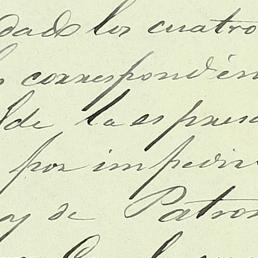 dados los cuatro
correspondien
lde la es presa
por impedir
y de Patron